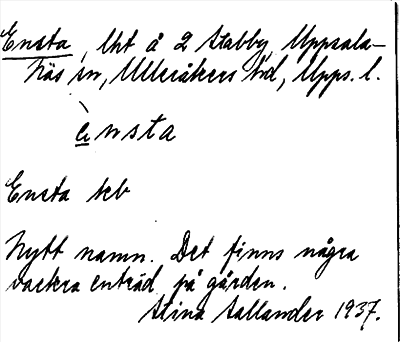 Ensta, lht å 2 Stabby, Uppsala-
Näs sn, Ulleråkers hd, Upps. l.
ensta
Ensta
Nytt namn. Det finns några
vackra enträd på gården.
Stina Sallander 1937.